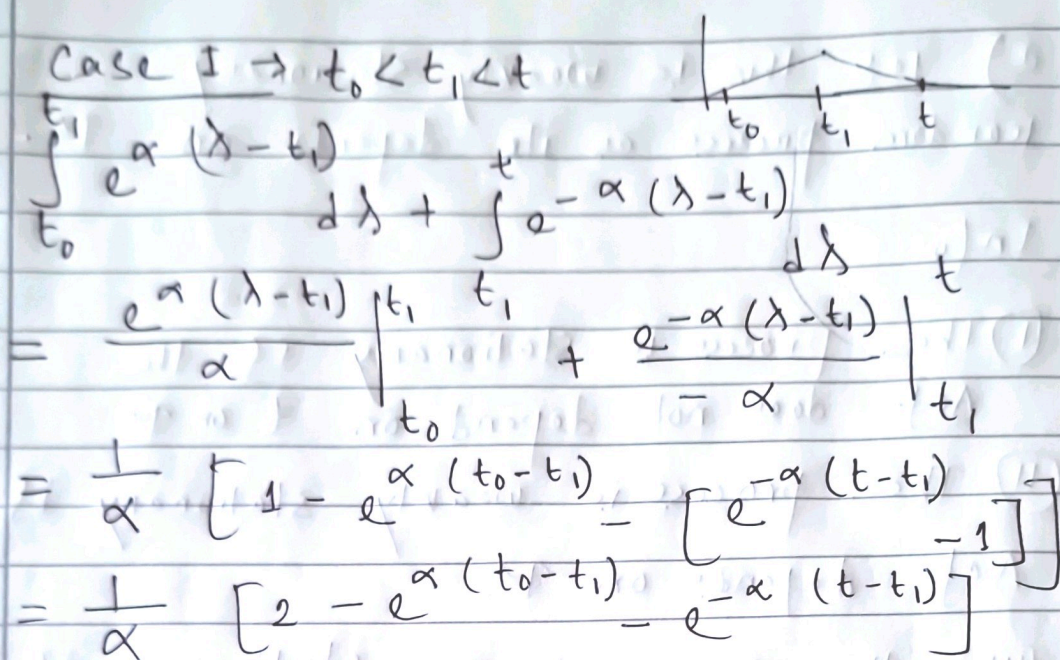 Case I → t₀ < t₁ < t
t₀ t₁ t
∫_{t₀}^{t₁} e^{α (λ - t₁)} dλ + ∫_{t₁}^{t} e^{- α (λ - t₁)} dλ
= e^{α (λ - t₁)} / α |_{t₀}^{t₁} + e^{-α (λ - t₁)} / - α |_{t₁}^{t}
= 1/α [ 1 - e^{α (t₀ - t₁)} - [ e^{-α (t - t₁)} - 1 ] ]
= 1/α [ 2 - e^{α (t₀ - t₁)} - e^{-α (t - t₁)} ]